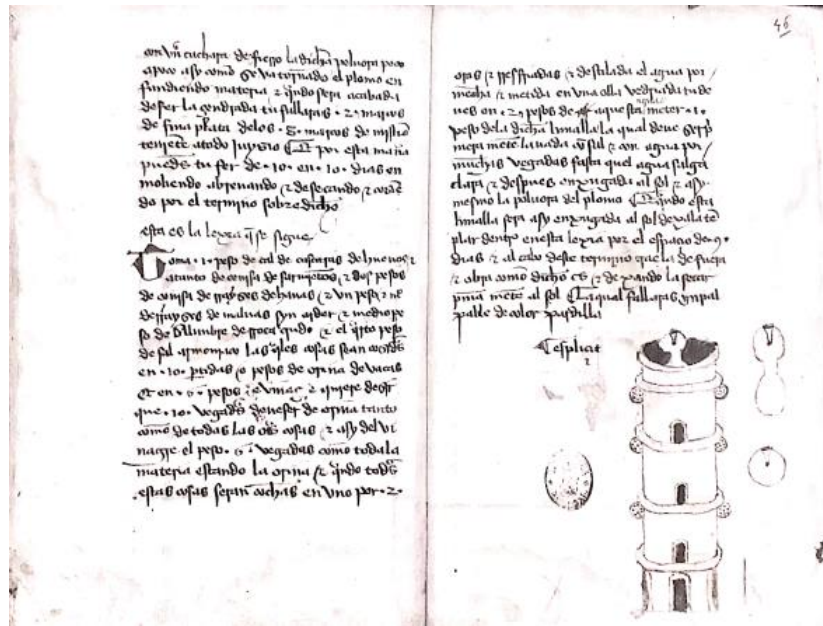 con vna cuchara de fierro la dicha poluora poco
a poco asy como se va tornado el plomo en
fundiendo materia & qndo sera acabada
de fer la çendrada tu fallaras .2. marcos
de fina plata delos .8. marcos de
tenjente a todo juyzio & por esta mana
puedes tu fer de .10. en .10. dias en
moliendo abrenando & desecando &
do por el termino sobre dicho
esta es la lexia q se sigue
Toma .1. peso de cal de cascaras de hueuos &
atanto de çenisa de sarmientos & dos pesos
de çenisa de rrayses de hauas & vn peso
de rrayses de maluas syn arder & medio pe
so de alumbre de rroca & el qrto peso
de sal armonico las qles cosas sean
en .10. ptidas o pesos de orina de vacas
& en .6. pesos de vinagre & quiere desir
que .10. vegadas deue ser de orina tanto
como de todas las otras cosas & asy del vi
nagre el peso .6. vegadas como toda la
materia estando la orina & qndo todas
estas cosas seran cochas en vno por .2.
46
oras & rresfriadas & destilada el agua por
mecha & metada en vna olla vedriada tu de
ues en .2. pesos de aquesta agua meter .1.
peso dela dicha limalla la qual deue ser p
mera mete lauada con sal & con agua por
muchas vegadas fasta quel agua salga
clara & despues enxugada al sol & asy
mesmo la poluora del plomo & qndo esta
limalla sera asy enxugada al sol dexala te
plar dentro en esta lexia por el espacio de .9.
dias & al cabo deste termino que la de fuera
& obra como dicho es & dexando la secar
pma mete al sol la qual fallaras inpal
pable de color pardilla
esplicit